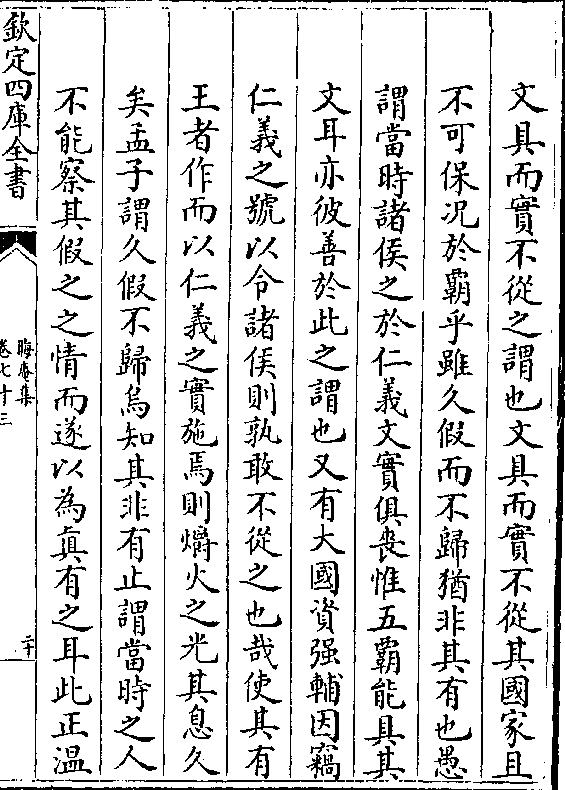 文具而實不從之謂也文具而實不從其國家且
不可保况於霸乎雖久假而不歸猶非其有也愚
謂當時諸侯之於仁義文實俱喪惟五霸能具其
文耳亦彼善於此之謂也又有大國資强輔因竊
仁義之號以令諸侯則孰敢不從之也哉使其有
王者作而以仁義之實施焉則爝火之光其息久
矣孟子謂久假不歸烏知其非有止謂當時之人
不能察其假之之情而遂以為真有之耳此正温
欽定四庫全書
晦庵集
卷七十三
二十